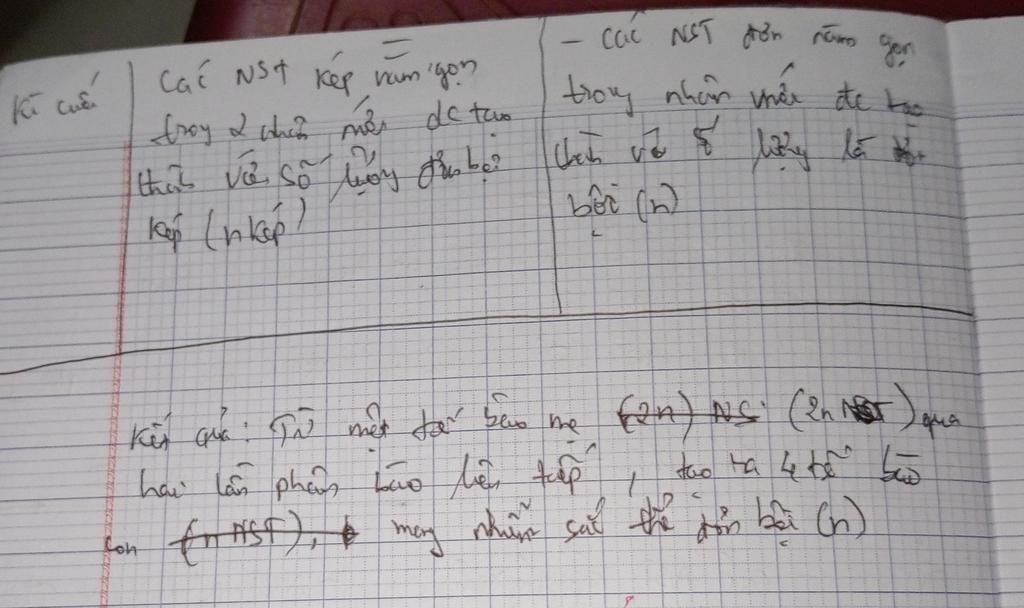 Kì cuối
Các NST kép nằm gọn
trong 2 nhân mới đc tạo
thành với số lượng đơn bội
kép (n kép)
– Các NST đơn nằm gọn
trong nhân mới đc tạo
thành với số lượng là
bội (n)
Kết quả: Từ một tế bào mẹ (2n) NS (2n NST) qua
hai lần phân bào liên tiếp, tạo ra 4 tế bào
con (n NST), mang nhiễm sắc thể đơn bội (n)